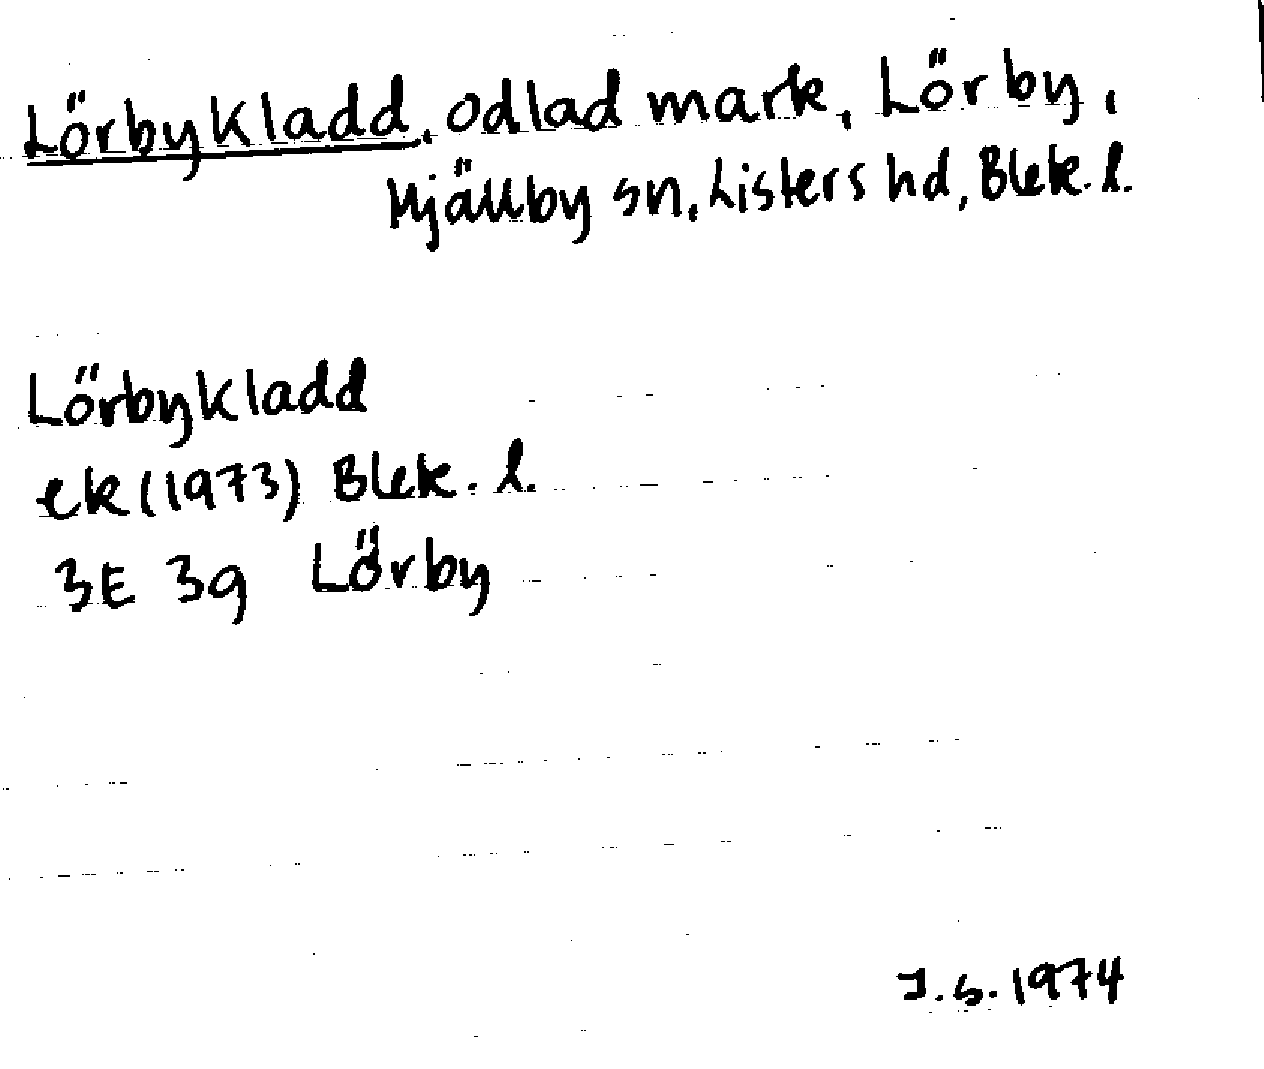 Lörbykladd, odlad mark, Lörby,
Mjällby sn, Listers hd, Blek. l.
Lörbykladd
ek (1973) Blek. l.
3E 3g Lörby
J.S. 1974